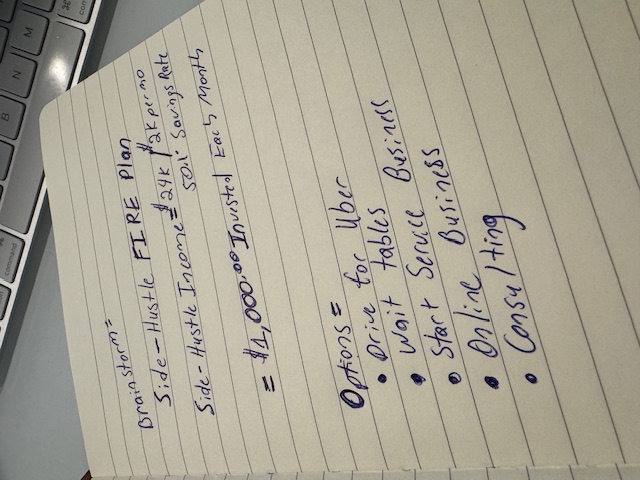 Brainstorm=
Side-Hustle FIRE Plan
Side-Hustle Income= $24K / $2K per mo
50% Savings Rate
= $1,000.00 Invested Each Month
Options=
• Drive for Uber
• Wait tables
• Start Service Business
• Online Business
• Consulting
command
B
N
M
⌘